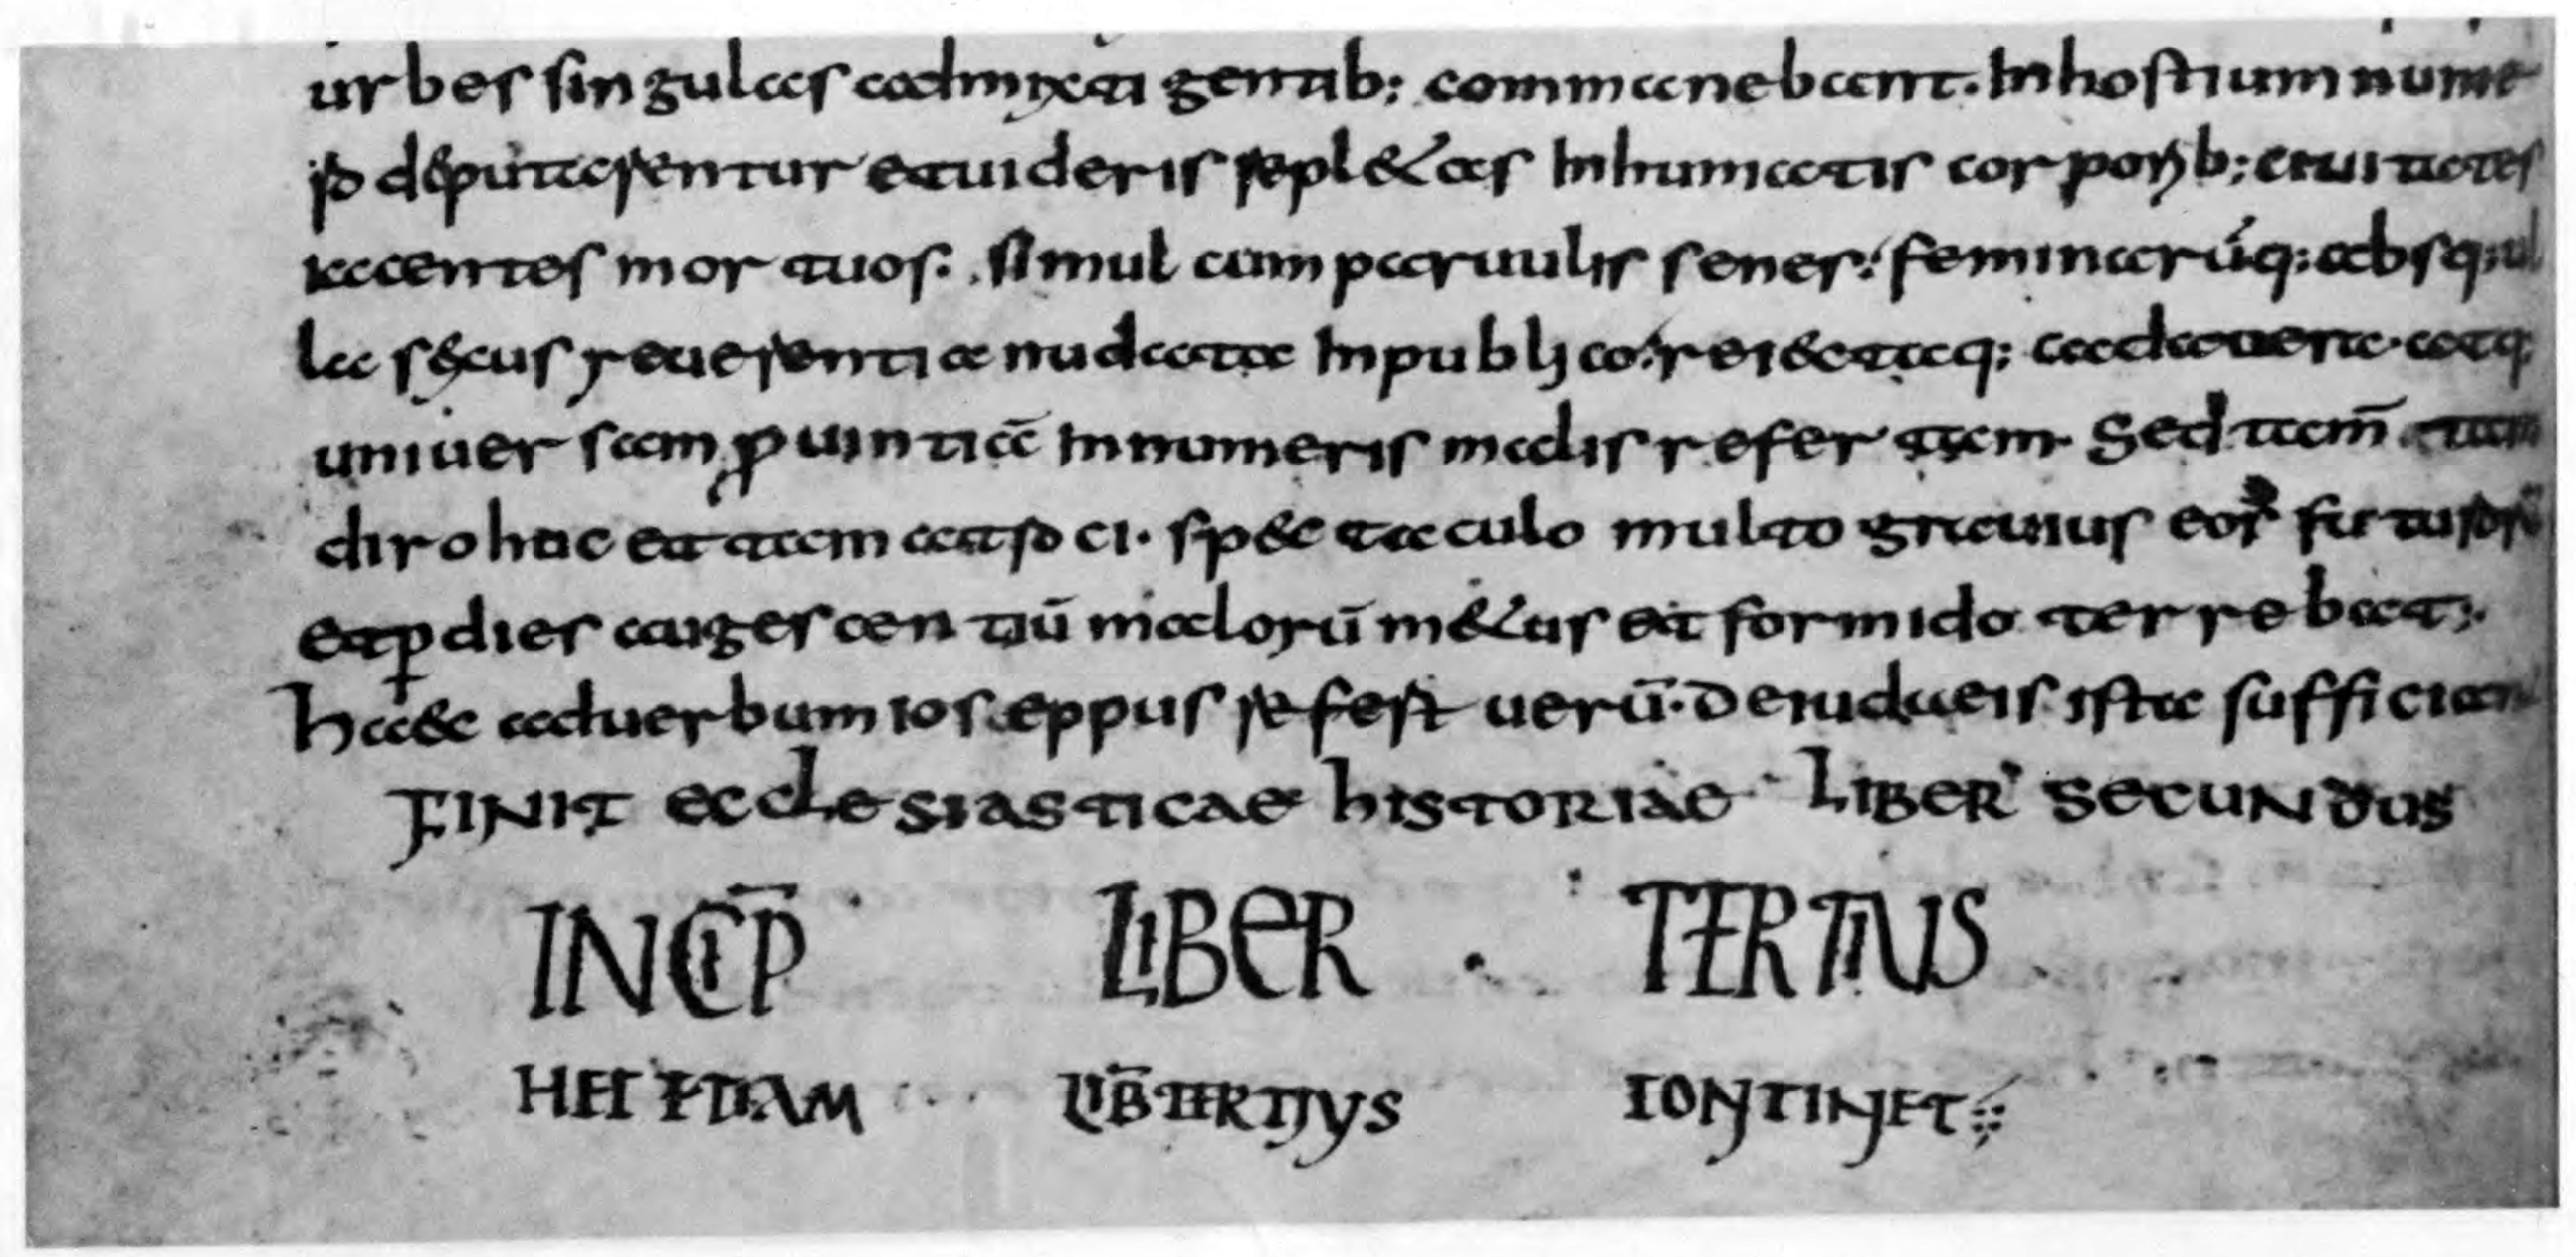 urbes singulas admixti gentib; commanebant. In hostium nume
ro deputarentur et uideris repletas inhumatis corporib; ciuitates
iacentes mortuos. simul cum paruulis senes. feminarūq; absq; ul
la secus reuerentia nudata in publico. reiectaq; cadauera. atq;
uniuersam ꝓuintiā innumeris malis refertam. Sed tam̄
diro hac et tam atroci. spectaculo multo grauius eoꝝ futurorū
et ꝑ dies augescentiū malorū metus et formido terrebat;.
haec ad uerbum iosaeppus refert uerū. de iudaeis ista sufficiant
FINIT ecclesiasticae historiae LIBER SECUNDUS
INCIP̄ LIBER TERTIUS
HEC ETIAM LIB̄ TERTIUS CONTINET